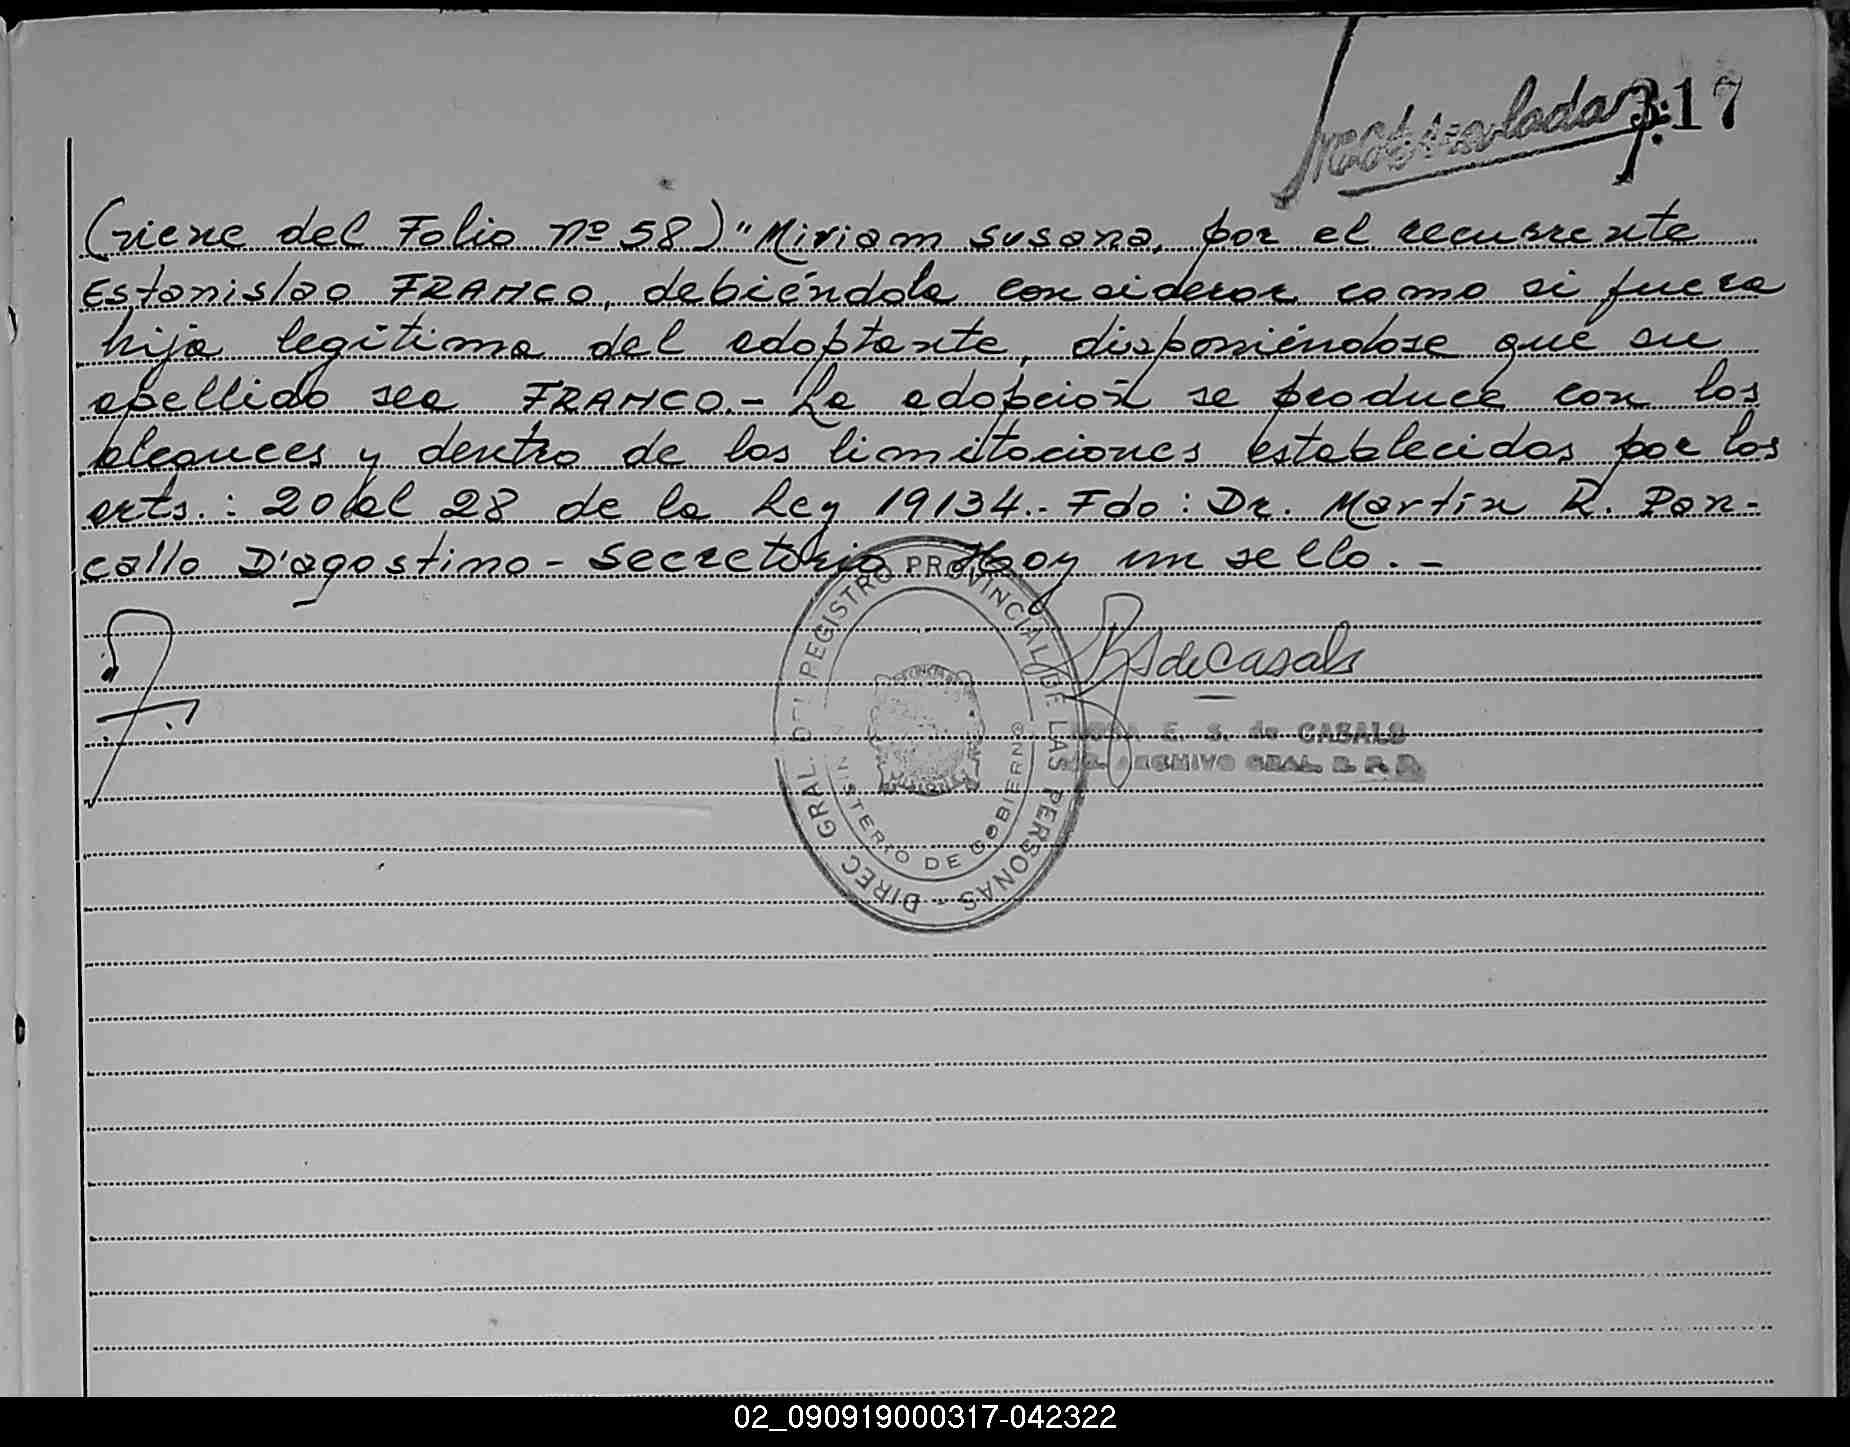 317
(viene del Folio nº 58) "Miriam Susana, por el recurrente
Estanislao FRANCO, debiéndola considerar como si fuera
hija legítima del adoptante, disponiéndose que su
apellido sea FRANCO.- La adopción se produce con los
alcances y dentro de las limitaciones establecidas por los
arts.: 20 al 28 de la Ley 19134.- Fdo: Dr. Martín R. Pan-
callo D'agostino - Secretario Hay un sello.-
DIREC. GRAL. DEL REGISTRO PROVINCIAL DE LAS PERSONAS -
MINISTERIO DE GOBIERNO
de Casals
E. S. de CASALS
ARCHIVO GRAL. R. P. P.
02_090919000317-042322